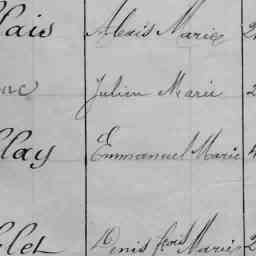 lais Alexis Marie 2
Julien Marie 2
llay Emmanuel Marie 4
llet Denis frois Marie 2